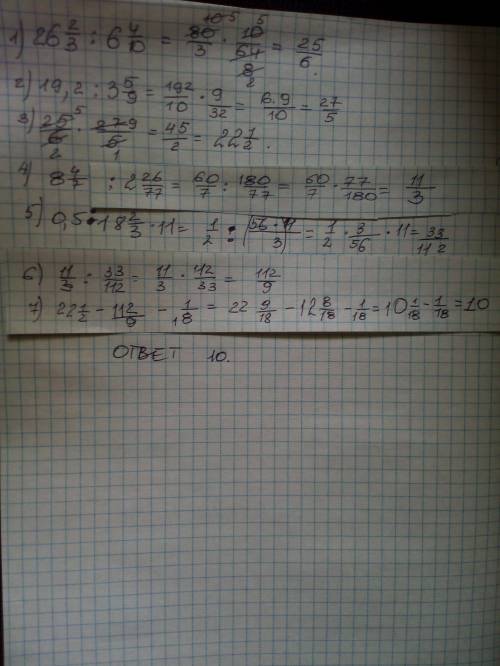 1) 26 2/3 : 6 4/10 = 80/3 · 10/64 = 25/6.
2) 19,2 : 3 5/9 = 192/10 · 9/32 = 6·9/10 = 27/5
3) 25/6 · 27/5 = 45/2 = 22 1/2.
4) 8 4/7 : 2 26/77 = 60/7 : 180/77 = 60/7 · 77/180 = 11/3
5) 0,5 : 18 2/3 · 11 = 1/2 : (56·11/3) = 1/2 · 3/56 · 11 = 33/112
6) 11/3 : 33/112 = 11/3 · 112/33 = 112/9
7) 22 1/2 - 112/9 - 1/18 = 22 9/18 - 12 8/18 - 1/18 = 10 1/18 - 1/18 = 10
ОТВЕТ 10.